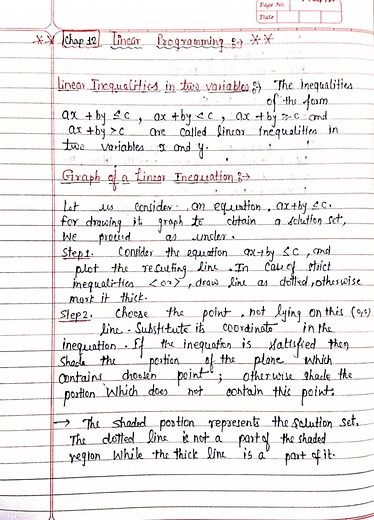 Page No.
Date
** Chap 12 Linear Programming :- **
Linear Inequalities in two variables :- The inequalities
of the form
ax + by ≤ c, ax + by < c, ax + by ≥ c and
ax + by > c are called linear inequalities in
two variables x and y.
Graph of a Linear Inequation :-
Let us consider an equation, ax+by ≤ c.
For drawing its graph to obtain a solution set,
We proceed as under.
Step 1. Consider the equation ax+by ≤ c, and
plot the resulting line. In case of strict
inequalities < or >, draw line as dotted, otherwise
mark it thick.
Step 2. Choose the point, not lying on this (0,0)
line. Substitute its coordinate in the
inequation. If the inequation is satisfied then
shade the portion of the plane which
contains choosen point; otherwise shade the
portion which does not contain this point.
→ The shaded portion represents the solution set.
The dotted line is not a part of the shaded
region while the thick line is a part of it.